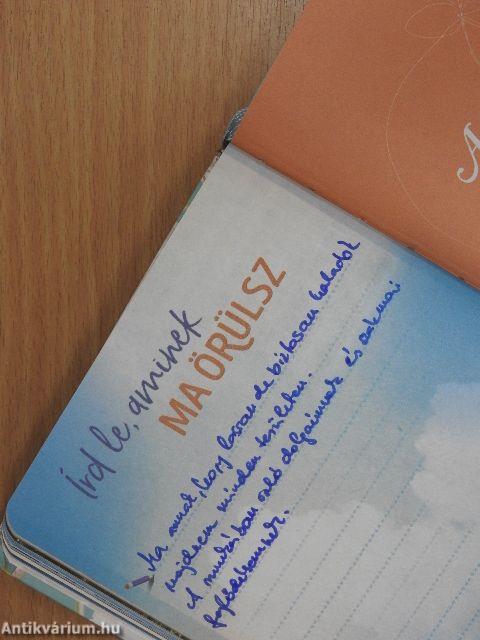 Írd le, aminek
MA ÖRÜLSZ
Ma annak, hogy lassan de biztosan haladok
majdnem minden területen.
A munkában való dolgaimnak és szakmai
fejlődésemnek.
A
Antikvárium.hu